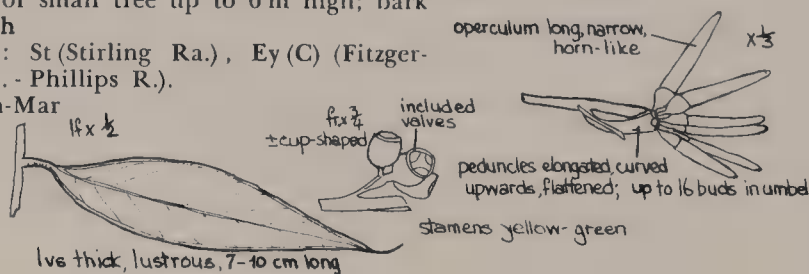 or small tree up to 6 m high; bark
h
: St (Stirling Ra.), Ey (C) (Fitzger-
. - Phillips R.).
-Mar
lf x ½
fr. x ¾
±cup-shaped
included
valves
operculum long, narrow,
horn-like
x ⅓
peduncles elongated, curved
upwards, flattened; up to 16 buds in umbel
stamens yellow-green
lvs thick, lustrous, 7-10 cm long